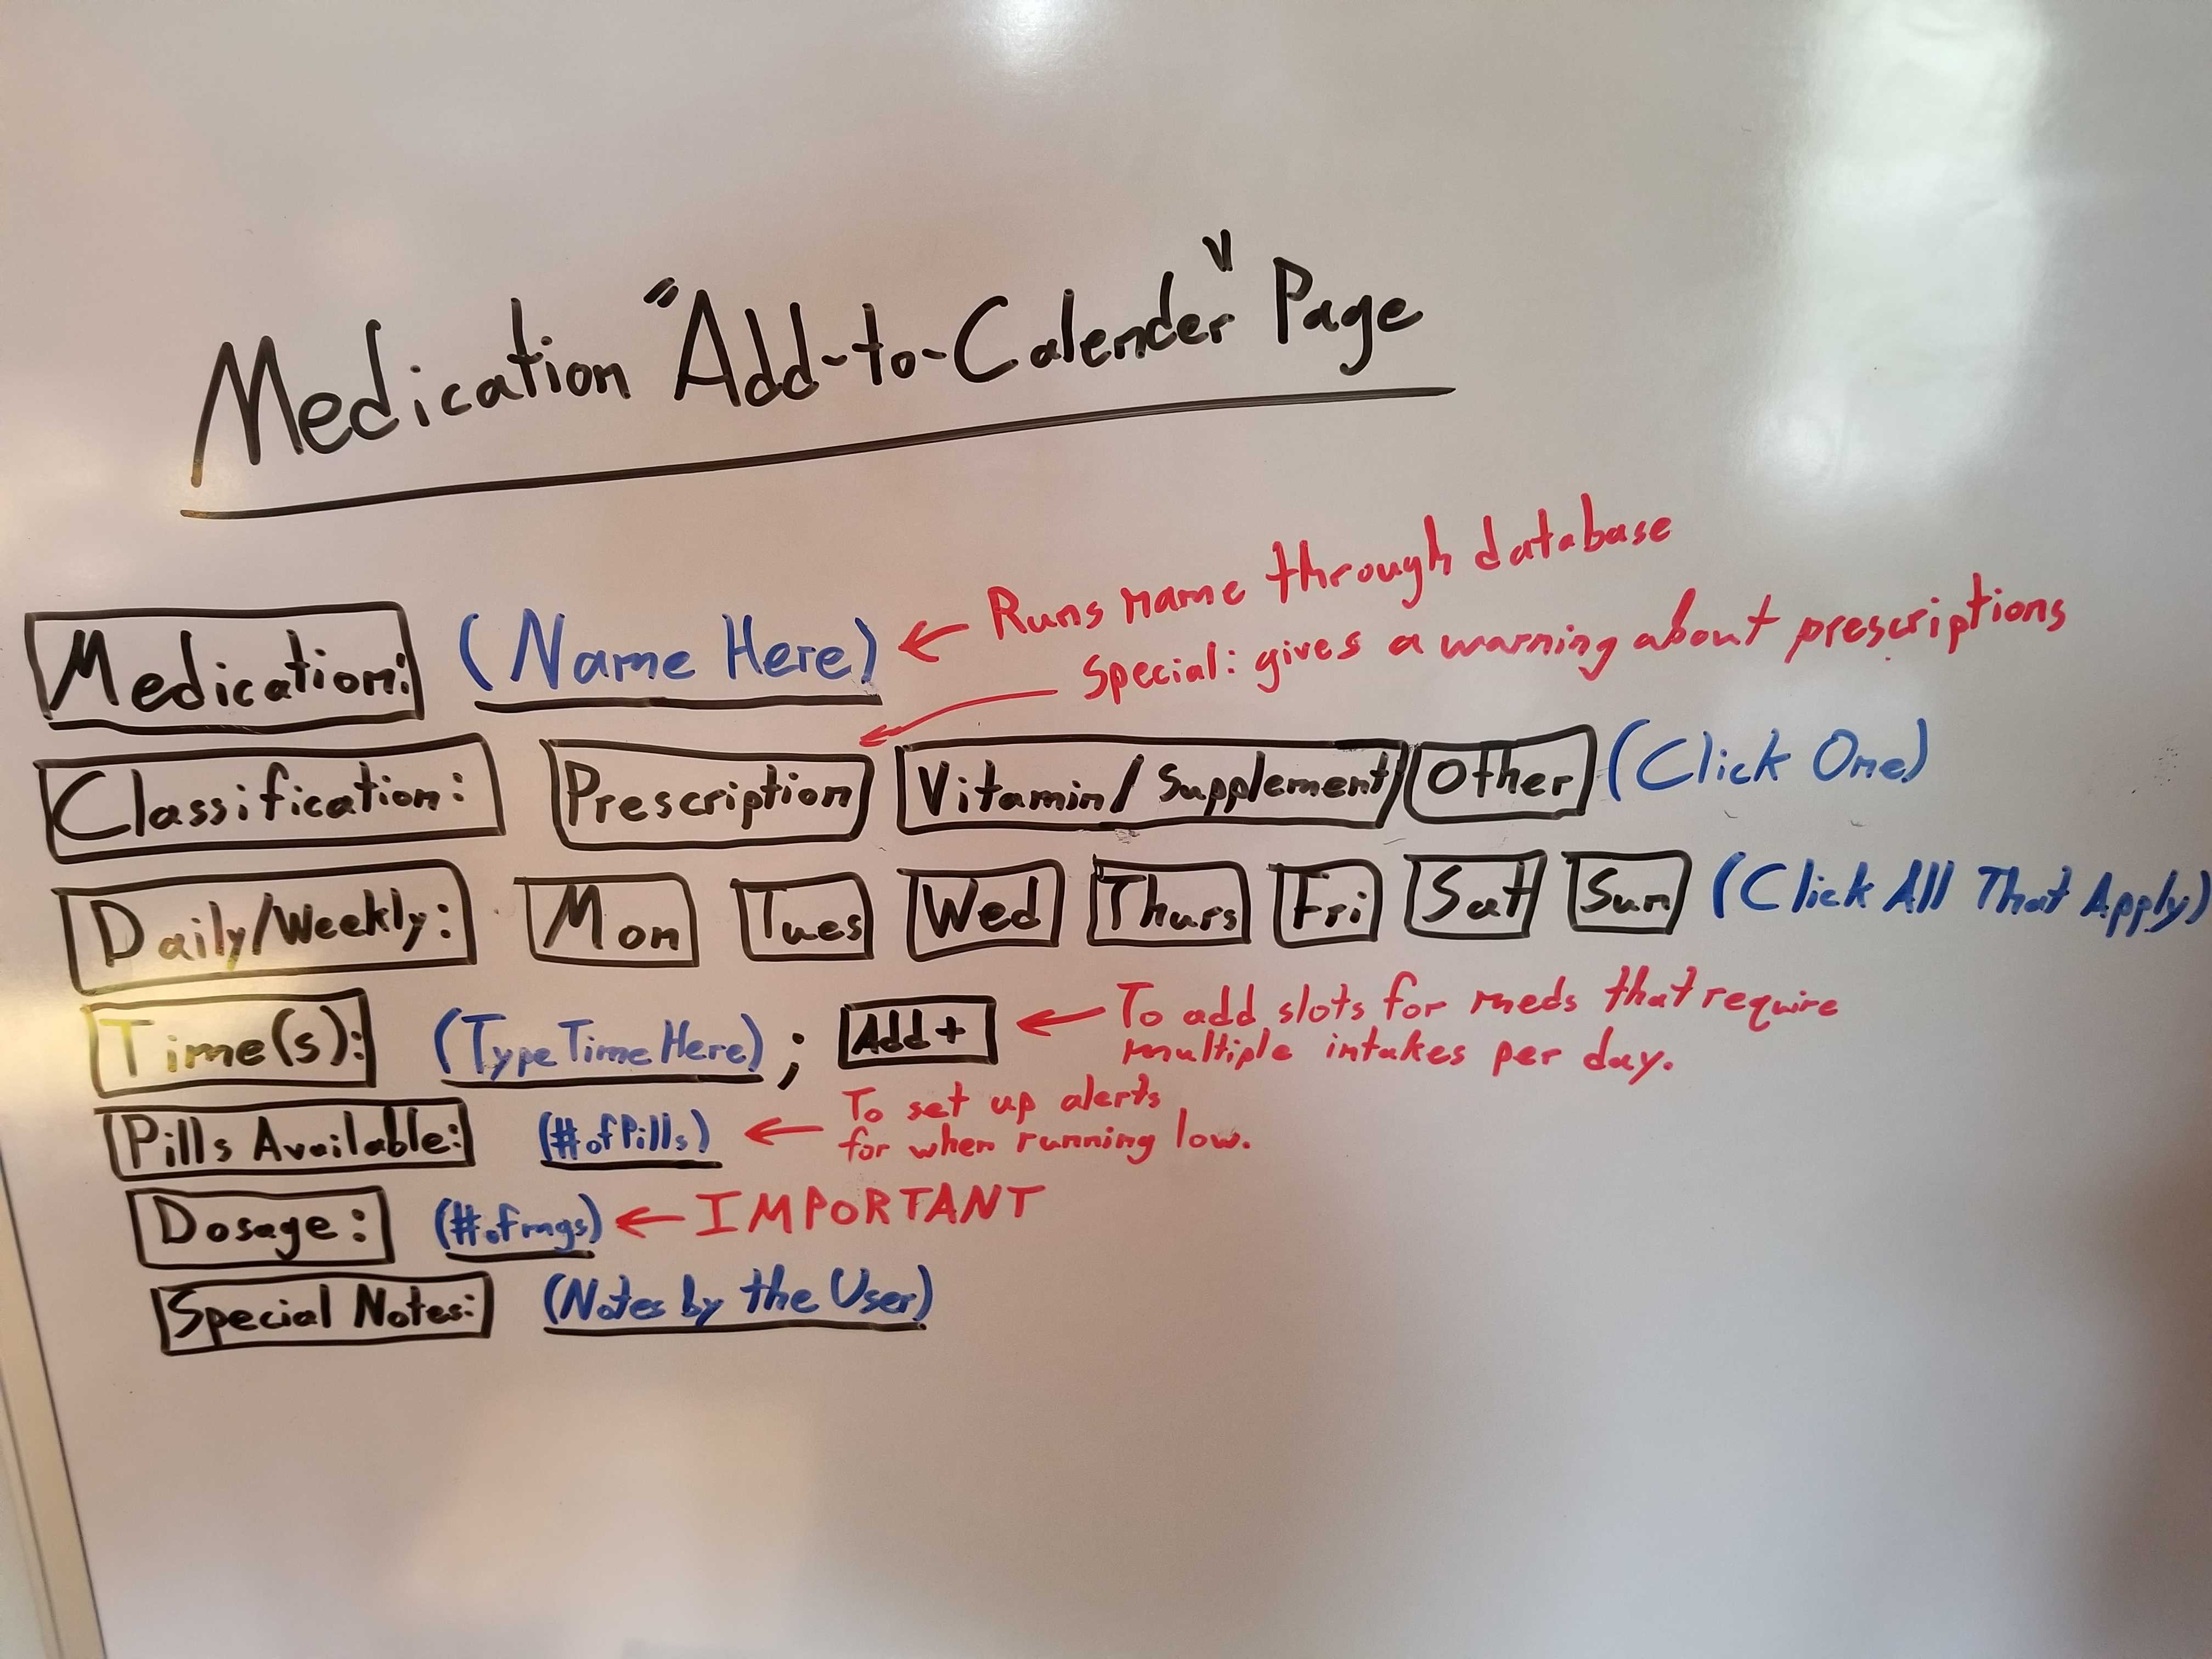 Medication "Add-to-Calender" Page
Medication: (Name Here) ← Runs name through database
Special: gives a warning about prescriptions
Classification: Prescription Vitamin/Supplement Other (Click One)
Daily/Weekly: Mon Tues Wed Thurs Fri Sat Sun (Click All That Apply)
Time(s): (Type Time Here) ; Add+ ← To add slots for meds that require
multiple intakes per day.
Pills Available: (# of Pills) ← To set up alerts
for when running low.
Dosage: (# of mgs) ← IMPORTANT
Special Notes: (Notes by the User)